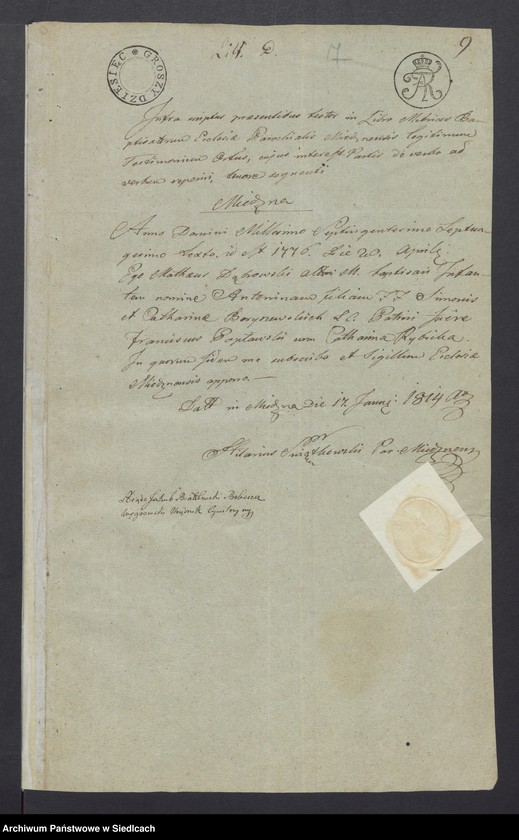 Litt. D.
17
9
GROSZY DZIESIĘC
Infra scriptus praesentibus testor in Libro Metrices Bap-
tisatorum Ecclesiae Parochialis Miedznensis legitimum
Testimonium Ortus, cujus interest Partis de verbo ad
verbum reperiri, tenore sequenti
Miedzna
Anno Domini Millesimo Septingentesimo Septua-
gesimo Sexto. id est 1776. Die 20. Aprilis
Ego Mathaeus Dąbrowski baptisavi Infan-
tem nomine Antoninam filiam Simonis
et Catharinae Boryszewskich L. C. Patrini fuere
Franciscus Popławski cum Catharina Rybicka.
In quorum fidem me subscribo et Sigillum Ecclesiae
Miedznensis appono.—
Datt in Miedzna Die 17. Januarii 1814
Hilarius Par. Miedznens
Xiądz Jakub

Archiwum Państwowe w Siedlcach